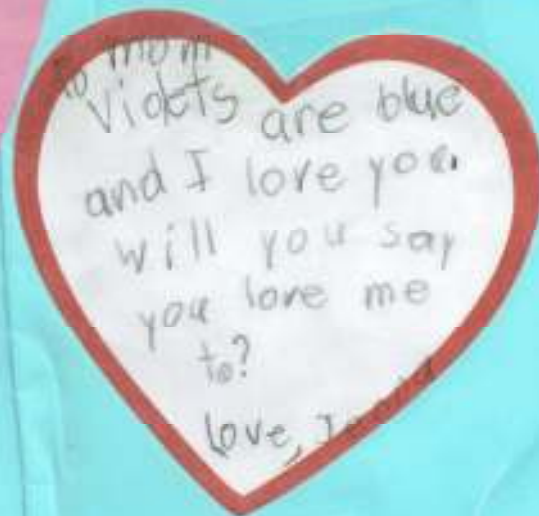 to mom
Violets are blue
and I love you.
will you say
you love me
to?
love,